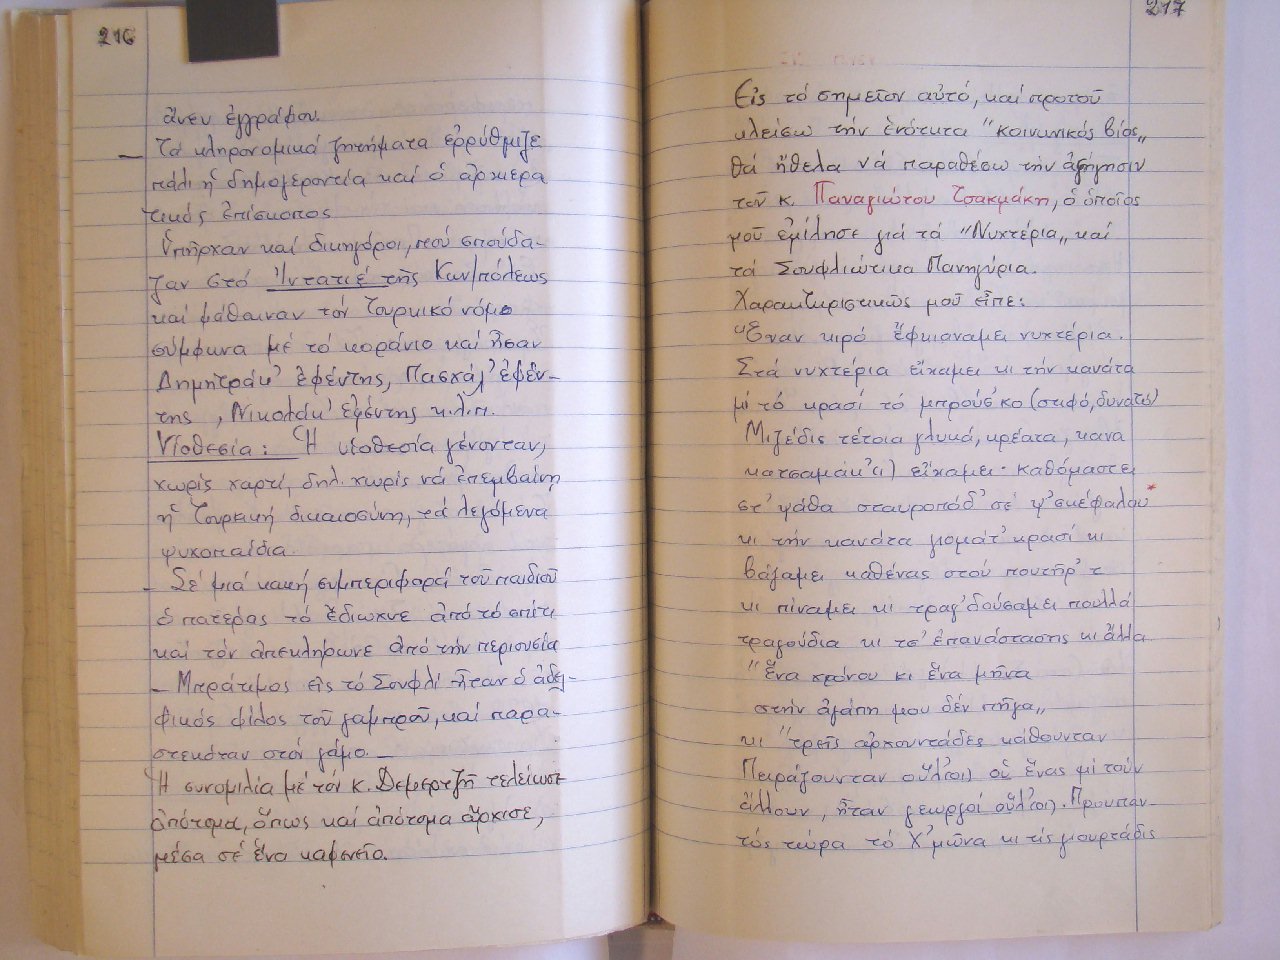 216
ἄνευ ἐγγράφου.
— Τά κληρονομικά ζητήματα ἐρρύθμιζε
πάλι ἡ δημογεροντία καί ὁ ἀρχιερα
τικός ἐπίσκοπος
Ὑπῆρχαν καί δικηγόροι, πού σπούδα-
ζαν στό Ἰντατιέ τῆς Κων/πόλεως
καί μάθαιναν τόν Τουρκικό νόμο
σύμφωνα μέ τό κοράνιο καί ἦσαν
Δημητράκ' ἐφέντης, Πασχάλ' ἐφέν-
της, Νικολάκ' ἐφέντης κ.λ.π.
Υἱοθεσία: Ἡ υἱοθεσία γένονταν,
χωρίς χαρτί, δηλ. χωρίς νά ἐπεμβαίνη
ἡ Τουρκική δικαιοσύνη, τά λεγόμενα
ψυχοπαίδια.
— Σέ μιά κακή συμπεριφορά τοῦ παιδιοῦ
ὁ πατέρας τό ἔδιωχνε ἀπό τό σπίτι
καί τόν ἀπεκλήρωνε ἀπό τήν περιουσία
— Μπράτιμος εἰς τό Σουφλί ἦταν ὁ ἀδελ-
φικός φίλος τοῦ γαμπροῦ, καί παρα-
στεκόταν στόν γάμο. —
Ἡ συνομιλία μέ τόν κ. Δεμερτζῆ τελείωσε
ἀπότομα, ὅπως καί ἀπότομα ἄρχισε,
μέσα σέ ἕνα καφενεῖο.
217
Εἰς τό σημεῖον αὐτό, καί προτοῦ
κλείσω τήν ἑνότητα "κοινωνικός βίος„
θά ἤθελα νά παραθέσω τήν ἀφήγησιν
τοῦ κ. Παναγιώτου Τσακμάκη, ὁ ὁποῖος
μοῦ ἐμίλησε γιά τά "Νυχτέρια„ καί
τά Σουφλιώτικα Πανηγύρια.
Χαρακτηριστικῶς μοῦ εἶπε:
"Ἕναν κιρό ἔφκιαναμει νυχτέρια.
Στά νυχτέρια εἴχαμει κι τήν κανάτα
μί τό κρασί τό μπρούσ'κο (στιφό, δυνατό)
Μιζέδις τέτοια γλυκά, κρέατα, κανα
κατσαμάκ'(ι) εἴχαμει· καθόμαστει
στ' ψάθα σταυροπόδ' σέ ψ'σκέφαλου*
κι τήν κανάτα γιομάτ' κρασί κι
βάζαμει καθένας στού πουτήρ' τ
κι πίναμει κι τραγ'δούσαμει πουλλά
τραγούδια κι τσ' ἐπανάστασης κι ἄλλα
"ἕνα χρόνου κι ἕνα μῆνα
στήν ἀγάπη μου δέν πῆγα„
κι "τρεῖς ἀρχουντάδες κάθουνταν
Πειράζουνταν οὕλ'(οι) οὑ ἕνας μί τούν
ἄλλουν, ἦταν γεωργοί οὕλ'(οι). Προυπαν-
τός τώρα τό Χ'μῶνα κι τίς γιουρτάδις